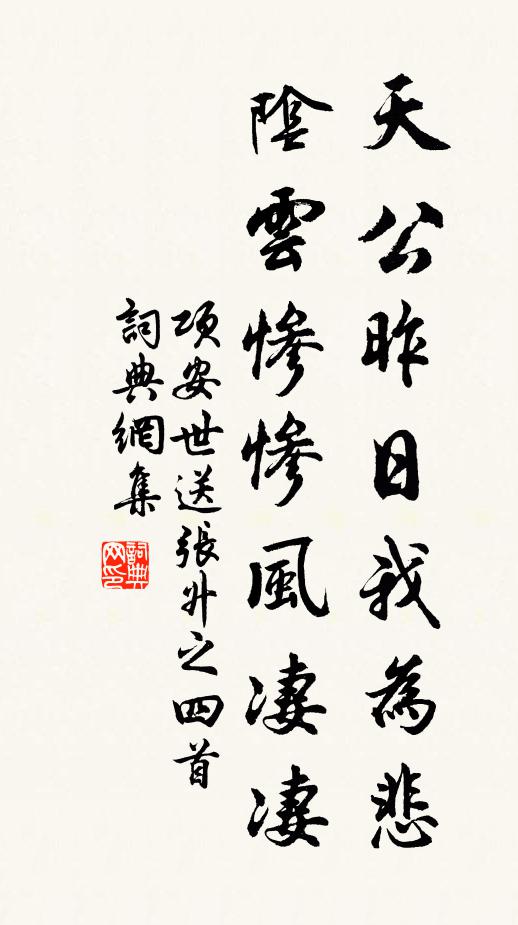 天公昨日我為悲
陰雲慘慘風淒淒
項安世送張升之四首
詞典網集
詞典网印